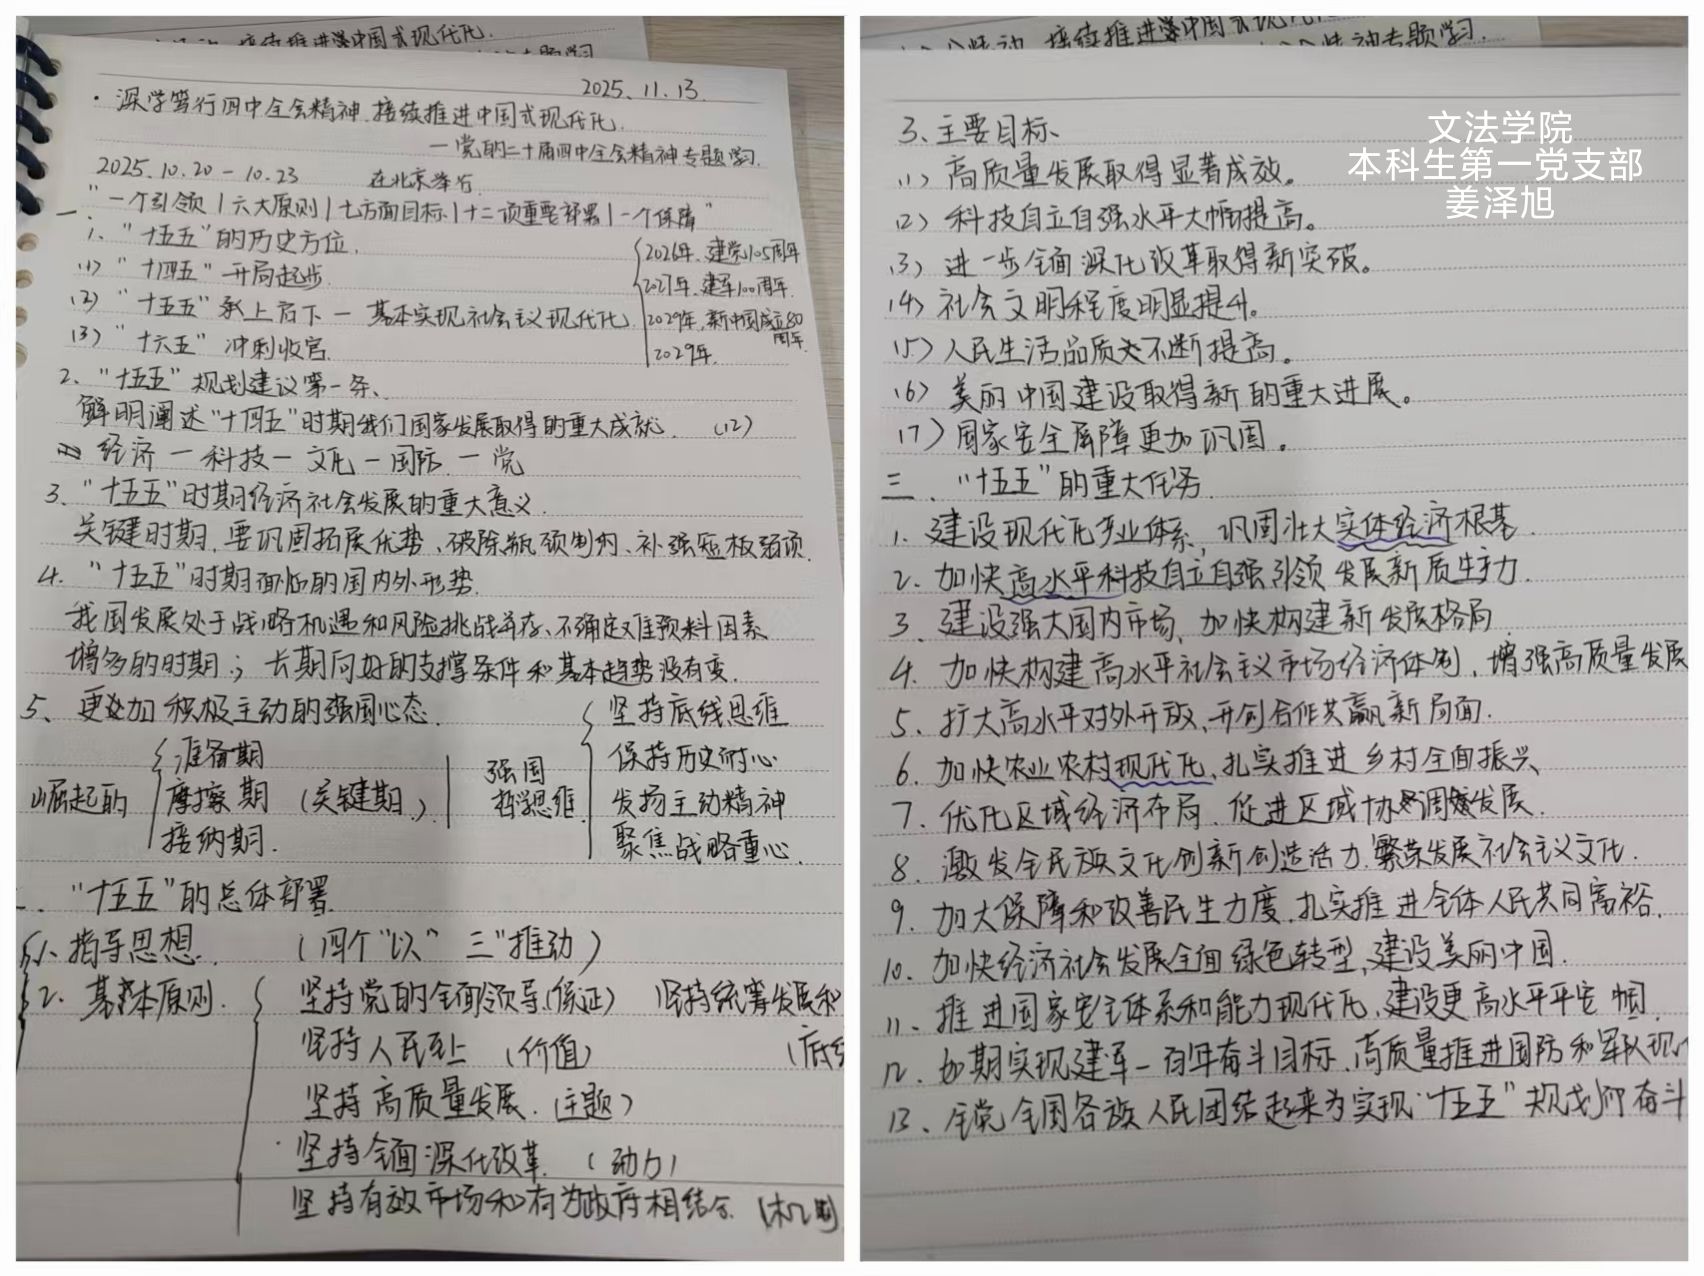 2025.11.13.
·深学笃行四中全会精神.接续推进中国式现代化.
—党的二十届四中全会精神专题学习.
2025.10.20-10.23 在北京举行.
"一个引领|六大原则|七方面目标|十二项重要部署|一个保障"
一、
1."十五五"的历史方位.
(1)"十四五"开局起步.
(2)"十五五"承上启下—基本实现社会主义现代化.
(3)"十六五"冲刺收官.
2026年.建党105周年
2027年.建军100周年.
2029年.新中国成立80周年
2029年.
2."十五五"规划建议第一条、
鲜明阐述"十四五"时期我们国家发展取得的重大成就. (12)
经济—科技—文化—国防.—党
3."十五五"时期经济社会发展的重大意义.
关键时期.要巩固拓展优势、破除瓶颈制约、补强短板弱项.
4."十五五"时期面临的国内外形势.
我国发展处于战略机遇和风险挑战并存、不确定难预料因素
增多的时期;长期向好的支撑条件和基本趋势没有变.
5、更加积极主动的强国心态.
崛起的
准备期
摩擦期(关键期)
接纳期.
强国
哲学思维.
坚持底线思维
保持历史耐心
发扬主动精神
聚焦战略重心.
二、"十五五"的总体部署
1.指导思想. (四个"以" 三"推动)
2.基本原则.
坚持党的全面领导(保证) 坚持统筹发展和
坚持人民至上 (价值) (底线
坚持高质量发展.(主题)
坚持全面深化改革. (动力)
坚持有效市场和有为政府相结合. (机制
接续推进中国式现代化.
精神专题学习.
文法学院
本科生第一党支部
姜泽旭
3.主要目标、
(1) 高质量发展取得显著成效。
(2) 科技自立自强水平大幅提高。
(3) 进一步全面深化改革取得新突破。
(4) 社会文明程度明显提升。
(5) 人民生活品质不断提高。
(6) 美丽中国建设取得新的重大进展。
(7) 国家安全屏障更加巩固。
三、"十五五"的重大任务.
1.建设现代化产业体系,巩固壮大实体经济根基.
2.加快高水平科技自立自强,引领发展新质生产力.
3.建设强大国内市场、加快构建新发展格局.
4.加快构建高水平社会主义市场经济体制,增强高质量发展
5.扩大高水平对外开放、开创合作共赢新局面.
6.加快农业农村现代化、扎实推进乡村全面振兴、
7.优化区域经济布局.促进区域协调发展.
8.激发全民族文化创新创造活力.繁荣发展社会主义文化.
9.加大保障和改善民生力度.扎实推进全体人民共同富裕.
10.加快经济社会发展全面绿色转型,建设美丽中国.
11.推进国家安全体系和能力现代化、建设更高水平平安中国.
12.如期实现建军一百年奋斗目标.高质量推进国防和军队现
13、全党全国各族人民团结起来为实现"十五五"规划而奋斗